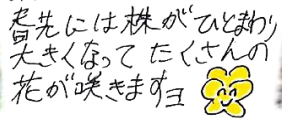 春先には株がひとまわり
大きくなってたくさんの
花が咲きますヨ